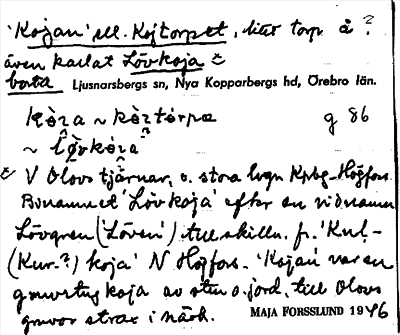 'Kojan' ell. Kojtorpet, litet torp å ?
även kallat Lövkoja č
borta Ljusnarsbergs sn, Nya Kopparbergs hd, Örebro län.
g 86
č V Olovs tjärnar, o. stora vägn Kpbg-Högfors.
Binamnet 'Lövkoja' efter en vid namn
Lövgren ('Löven') till skilln. fr. 'Kul-
(Kur-?) koja' N Högfors. 'Kojan' var en
gruvstugkoja av sten o. jord, till Olovs
gruvor strax i närh.
MAJA FORSSLUND 1946